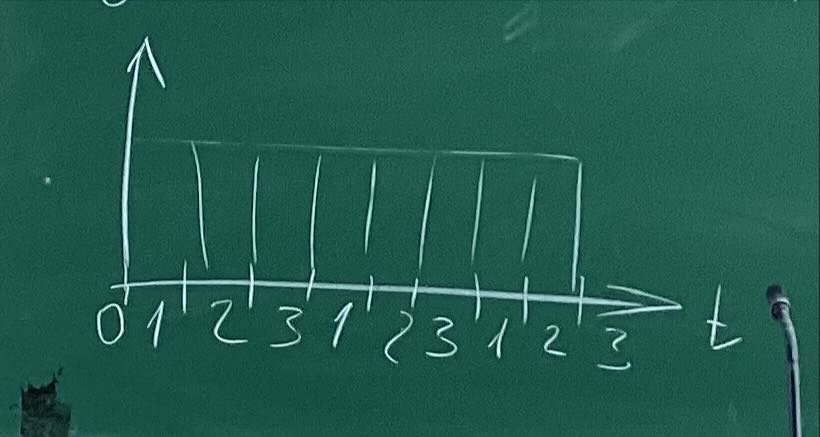 0 1 2 3 1 2 3 1 2 3 t